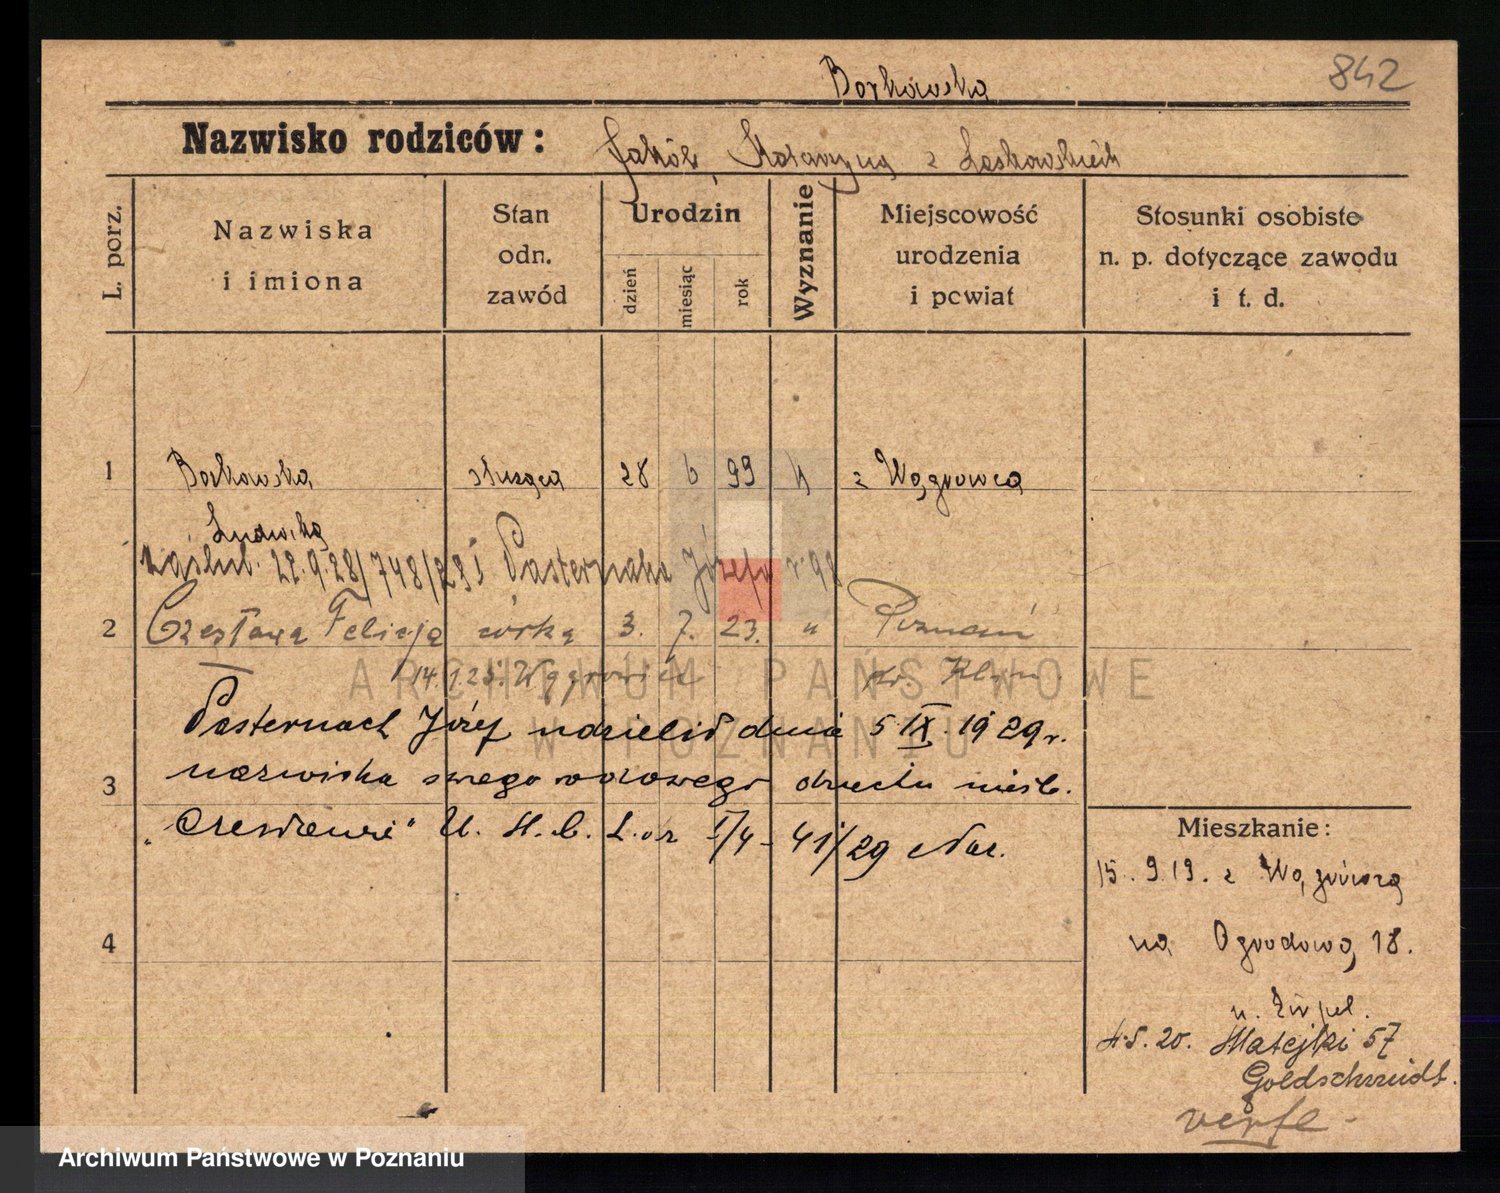 Borkowska
842
Nazwisko rodziców: Jakób, Katarzyna z Laskowskich
L. porz.
Nazwiska
i imiona
Stan
odn.
zawód
Urodzin
dzień
miesiąc
rok
Wyznanie
Miejscowość
urodzenia
i powiat
Stosunki osobiste
n. p. dotyczące zawodu
i t. d.
1 Borkowska służąca 28 6 99 k z Wągrowca
Ludwika
zaślub. 22.9.28/748/291 Pasternaka Józefa r. 98
2 Czesława Felicja córka 3. 7. 23. " Poznań
14.1.25. Wągrowiec
Pasternach Józef udzielił dnia 5 IX. 1929 r.
3 nazwiska swego rodowego dziecku nieśl.
"Czesławie" U. St. C. L. or I/4-41/29 Nar.
4
Mieszkanie:
15.9.19. z Wągrowca
na Ogrodową 18.
4.5.20. Matejki 57
Goldschmidt.
verte
ARCHIWUM PAŃSTWOWE
W POZNANIU
Archiwum Państwowe w Poznaniu